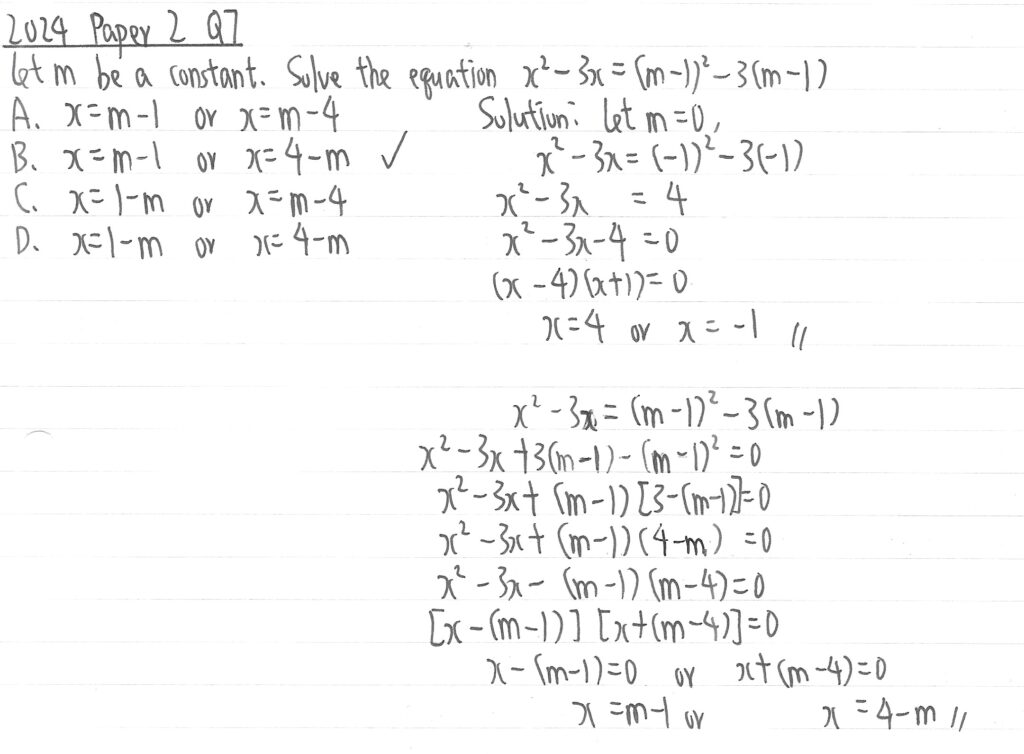 2024 Paper 2 Q7
Let m be a constant. Solve the equation x² - 3x = (m-1)² - 3(m-1)
A. x = m-1 or x = m-4
B. x = m-1 or x = 4-m ✓
C. x = 1-m or x = m-4
D. x = 1-m or x = 4-m
Solution: Let m = 0,
x² - 3x = (-1)² - 3(-1)
x² - 3x = 4
x² - 3x - 4 = 0
(x - 4)(x+1) = 0
x = 4 or x = -1 //
x² - 3x = (m-1)² - 3(m-1)
x² - 3x + 3(m-1) - (m-1)² = 0
x² - 3x + (m-1)[3-(m-1)] = 0
x² - 3x + (m-1)(4-m) = 0
x² - 3x - (m-1)(m-4) = 0
[x-(m-1)][x+(m-4)] = 0
x-(m-1) = 0 or x+(m-4) = 0
x = m-1 or x = 4-m //